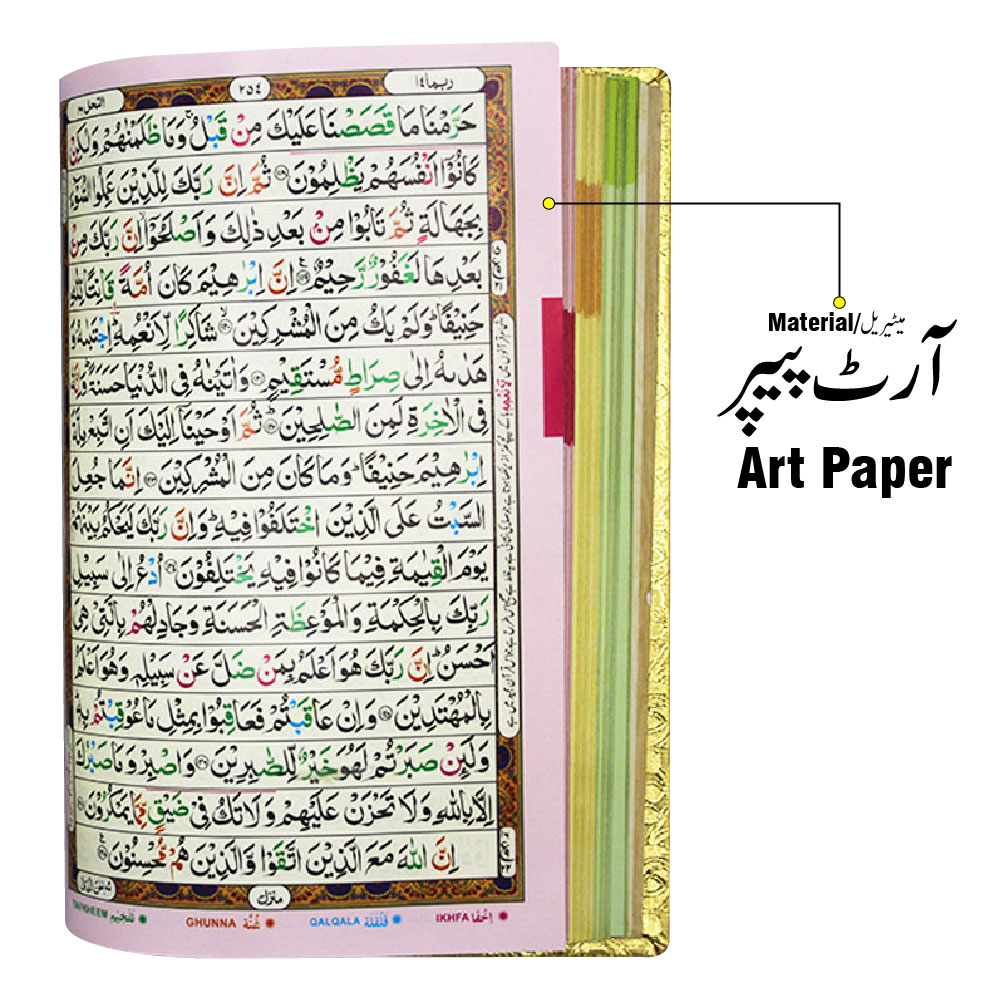 ربما ١٤
٢٥٤
النحل ١٦
حَرَّمْنَا مَا قَصَصْنَا عَلَيْكَ مِنْ قَبْلُ ۚ وَمَا ظَلَمْنٰهُمْ وَلٰكِنْ
كَانُوْۤا اَنْفُسَهُمْ يَظْلِمُوْنَ ۝ ثُمَّ اِنَّ رَبَّكَ لِلَّذِيْنَ عَمِلُوا السُّوْٓءَ
بِجَهَالَةٍ ثُمَّ تَابُوْا مِنْۢ بَعْدِ ذٰلِكَ وَاَصْلَحُوْۤا اِنَّ رَبَّكَ مِنْۢ
بَعْدِهَا لَغَفُوْرٌ رَّحِيْمٌ ۝ اِنَّ اِبْرٰهِيْمَ كَانَ اُمَّةً قَانِتًا لِّلّٰهِ
حَنِيْفًا ؕ وَلَمْ يَكُ مِنَ الْمُشْرِكِيْنَ ۝ شَاكِرًا لِّاَنْعُمِهٖ ؕ اِجْتَبٰىهُ وَ
هَدٰىهُ اِلٰى صِرَاطٍ مُّسْتَقِيْمٍ ۝ وَاٰتَيْنٰهُ فِى الدُّنْيَا حَسَنَةً ؕ وَاِنَّهٗ
فِى الْاٰخِرَةِ لَمِنَ الصّٰلِحِيْنَ ۝ ثُمَّ اَوْحَيْنَاۤ اِلَيْكَ اَنِ اتَّبِعْ مِلَّةَ
اِبْرٰهِيْمَ حَنِيْفًا ؕ وَمَا كَانَ مِنَ الْمُشْرِكِيْنَ ۝ اِنَّمَا جُعِلَ
السَّبْتُ عَلَى الَّذِيْنَ اخْتَلَفُوْا فِيْهِ ؕ وَاِنَّ رَبَّكَ لَيَحْكُمُ بَيْنَهُمْ
يَوْمَ الْقِيٰمَةِ فِيْمَا كَانُوْا فِيْهِ يَخْتَلِفُوْنَ ۝ اُدْعُ اِلٰى سَبِيْلِ
رَبِّكَ بِالْحِكْمَةِ وَالْمَوْعِظَةِ الْحَسَنَةِ وَجَادِلْهُمْ بِالَّتِىْ هِىَ
اَحْسَنُ ؕ اِنَّ رَبَّكَ هُوَ اَعْلَمُ بِمَنْ ضَلَّ عَنْ سَبِيْلِهٖ وَهُوَ اَعْلَمُ
بِالْمُهْتَدِيْنَ ۝ وَاِنْ عَاقَبْتُمْ فَعَاقِبُوْا بِمِثْلِ مَا عُوْقِبْتُمْ بِهٖ
وَلَئِنْ صَبَرْتُمْ لَهُوَ خَيْرٌ لِّلصّٰبِرِيْنَ ۝ وَاصْبِرْ وَمَا صَبْرُكَ
اِلَّا بِاللّٰهِ وَلَا تَحْزَنْ عَلَيْهِمْ وَلَا تَكُ فِىْ ضَيْقٍ مِّمَّا يَمْكُرُوْنَ ۝
اِنَّ اللّٰهَ مَعَ الَّذِيْنَ اتَّقَوْا وَّالَّذِيْنَ هُمْ مُّحْسِنُوْنَ ۝
منزل ٣
IKHFA اِخْفَا
QALQALA قَلْقَلَة
GHUNNA غُنَّه
Material/میٹیریل
آرٹ پیپر
Art Paper